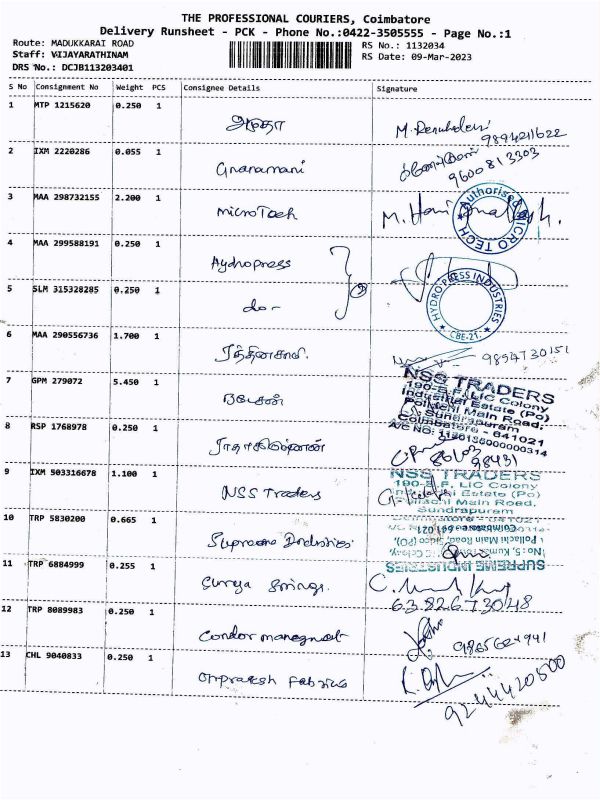 THE PROFESSIONAL COURIERS, Coimbatore
Delivery Runsheet - PCK - Phone No.:0422-3505555 - Page No.:1
Route: MADUKKARAI ROAD
RS No.: 1132034
Staff: VIJAYARATHINAM
RS Date: 09-Mar-2023
DRS No.: DCJB113203401
S No Consignment No Weight PCS Consignee Details Signature
1 MTP 1215620 0.250 1
2 IXM 2220286 0.055 1 Gnanamani
9600813303
3 MAA 298732155 2.200 1 MicroTech
Authorised
MICRO TECH
4 MAA 299588191 0.250 1 Hydropress
5 SLM 315328285 0.250 1 do-
HYDRO PRESS INDUSTRIES
CBE-21.
6 MAA 290556736 1.700 1 ரத்தினசாமி. 9894730151
7 GPM 279072 5.450 1
NSS TRADERS
190-S.F. LIC Colony
Industrial Estate (Po)
Pollachi Main Road,
Sundrapuram
Coimbatore - 641021
8 RSP 1768978 0.250 1 ராதாகிருஷ்ணன்
9 IXM 503316678 1.100 1 NSS Traders
NSS TRADERS
190-S.F. LIC Colony
Industrial Estate (Po)
Pollachi Main Road,
Sundrapuram
10 TRP 5830200 0.665 1 Supreme Industries
SUPREME INDUSTRIES
11 TRP 6884999 0.255 1 Surya Springs.
6382673048
12 TRP 8089983 0.250 1 Condor
13 CHL 9040833 0.250 1 Omprakash Fabrics
9244420500